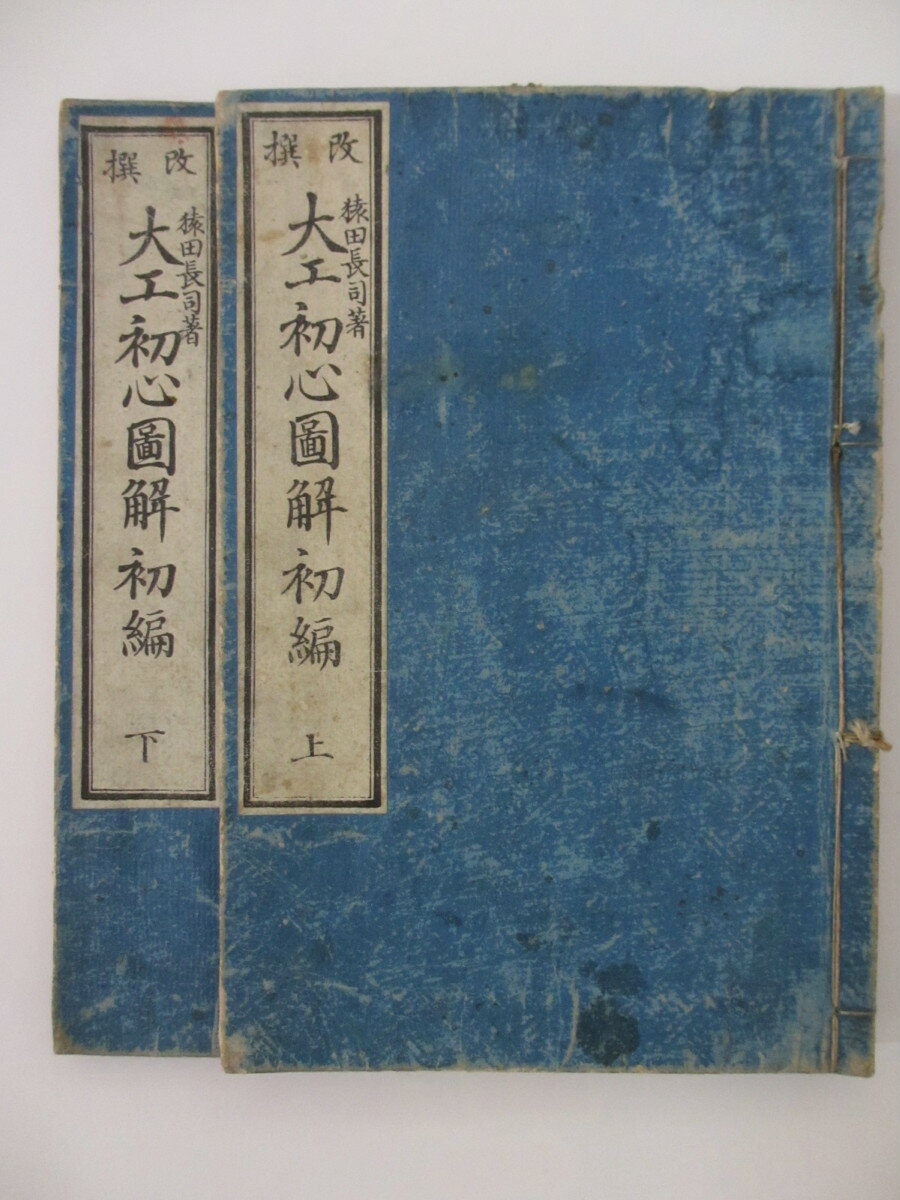 改撰
猿田長司著
大工初心圖解初編
上
改撰
猿田長司著
大工初心圖解初編
下